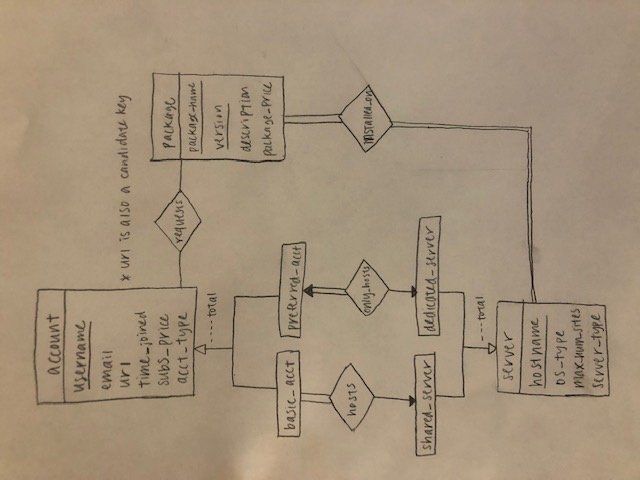 account
username
email
url
time_joined
subs_price
acct_type
* url is also a candidate key
requests
package
package_name
version
description
package_price
----total
basic_acct
preferred_acct
hosts
only_hosts
installed_on
shared_server
dedicated_server
---total
server
hostname
os_type
max_num_sites
server_type